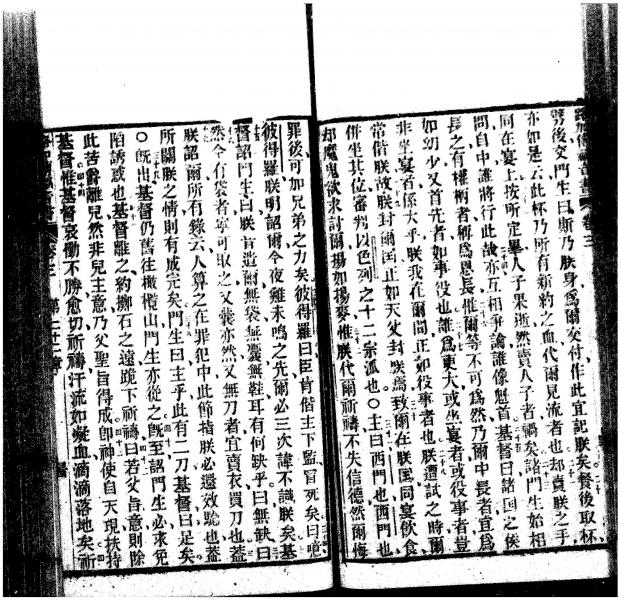 路加傳福音書 卷三
劈後交門生曰斯乃朕身爲爾交付作此宜記朕矣督餐後取杯
亦如是云此杯乃所有新約之血代爾見流者也却賣朕之手
同在宴上按所定畢人子果逝然賣人子者禍矣諸門生始相
問自中誰將行此哉亦互相爭論誰像魁首基督曰諸国之侯
長之有權柄者稱爲恩長惟爾等不可爲然乃爾中長者宜爲
如幼少又首先者如事役也誰爲更大或坐宴者或役事者豈
非坐宴者係大乎朕我在爾間正如役事者也朕遭試之時爾
常偕朕故朕封爾国正如天父封朕焉致爾在朕国同宴飲食
併坐其位審判以色列之十二宗派也〇主曰西門也西門也
却魔鬼欲求討爾揚如揚麥惟朕代爾祈禱不失信德然爾悔
罪後可加兄弟之力矣彼得羅曰臣肯偕主下監冒死矣曰噫
彼得羅朕明詔爾今夜雞未鳴之先爾必三次諱不識朕矣基
督詔門生曰朕前遣爾無袋無囊無鞋耳有何缺乎曰無缺曰
然今有袋者寧可取之又囊亦然又無刀者宜賣衣買刀也蓋
朕詔爾所有錄云人算之在罪犯中此節指朕必還效騐也蓋
所關朕之情則有成完矣門生曰主乎此有二刀基督曰足矣
〇旣出基督仍舊往橄欖山門生亦從之旣至詔門生必求免
陷誘惑也基督離之約擲石之遠跪下祈禱曰若父旨意則除
此苦爵離兒然非兒主意乃父聖旨得成卽神使自天現扶持
基督惟基督哀慟不勝愈切祈禱汗流如凝血滴滴落地矣祈
卷三 第二十二章